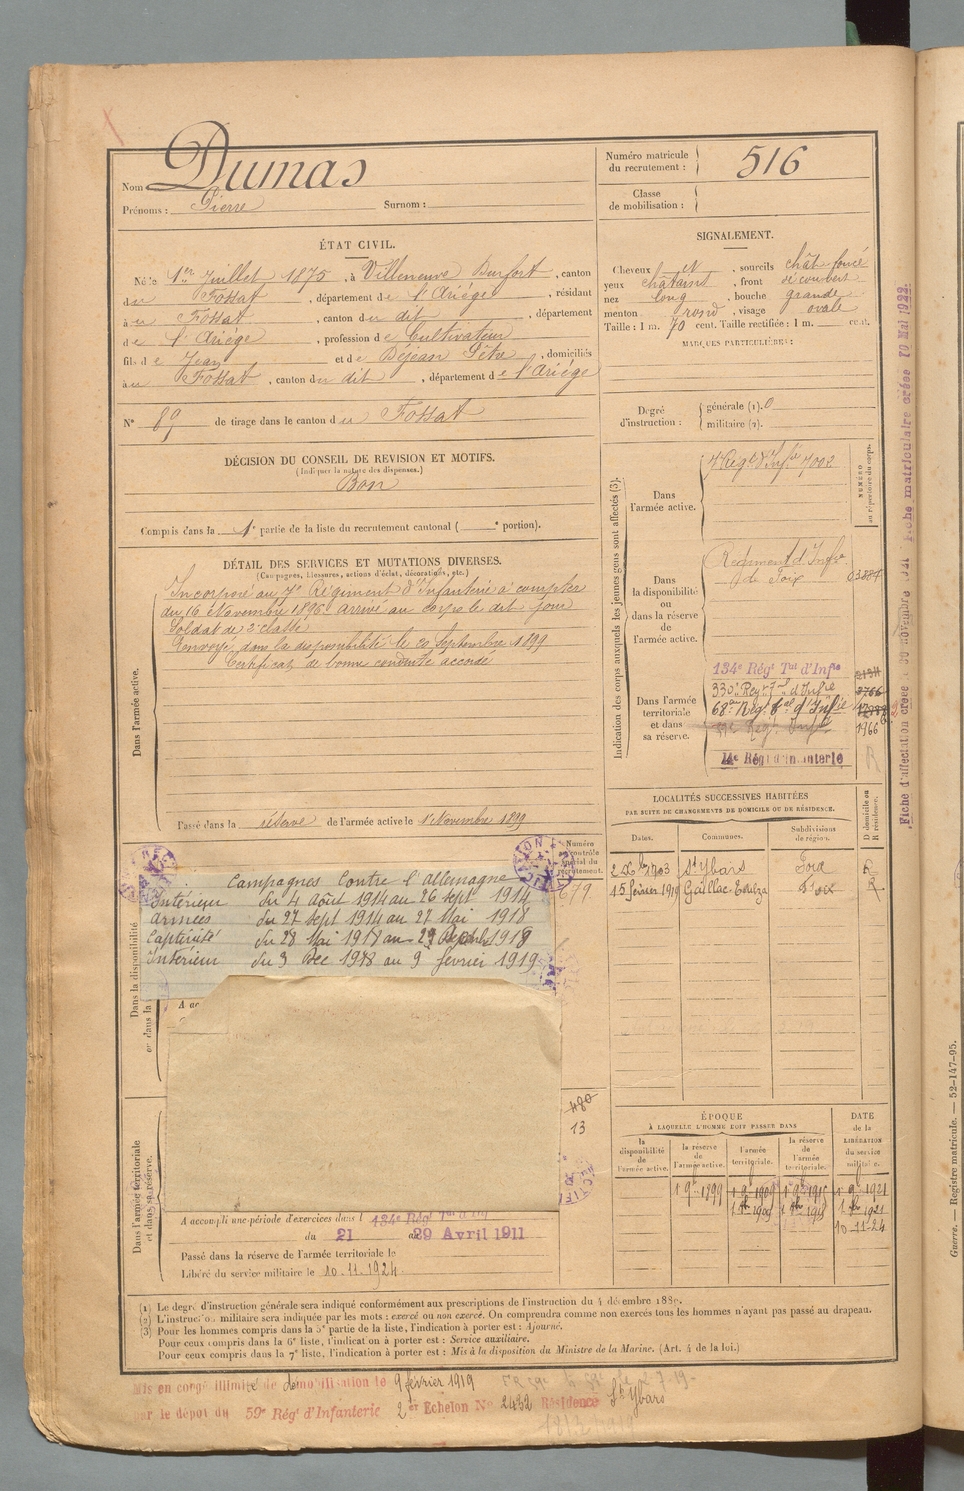 Nom Dumas
Prénoms : Pierre Surnom :
Numéro matricule du recrutement : 516
Classe de mobilisation :
ÉTAT CIVIL.
Né le 1er Juillet 1875, à Villeneuve Durfort, canton
du Fossat, département de l'Ariège, résidant
à u Fossat, canton du dit, département
de l'Ariège, profession de Cultivateur
fils de Jean et de Déjean Pétr, domiciliés
à u Fossat, canton du dit, département de l'Ariège
N° 89 de tirage dans le canton du Fossat
DÉCISION DU CONSEIL DE REVISION ET MOTIFS.
(Indiquer la nature des dispenses.)
Bon
Compris dans la 1e partie de la liste du recrutement cantonal ( e portion).
DÉTAIL DES SERVICES ET MUTATIONS DIVERSES.
(Campagnes, blessures, actions d'éclat, décorations, etc.)
Dans l'armée active.
Incorporé au 7e Régiment d'Infanterie à compter
du 16 Novembre 1896. Arrivé au corps le dit jour
Soldat de 2e classe
Envoyé dans la disponibilité le 20 Septembre 1899
Certificat de bonne conduite accordé
Passé dans la réserve de l'armée active le 1er Novembre 1899
Dans la disponibilité
ou dans la
Campagnes Contre l'Allemagne
Intérieur du 4 août 1914 au 26 sept 1914
Armées du 27 sept 1914 au 27 Mai 1918
Captivité du 28 Mai 1918 au 1918
Intérieur du 3 Dec 1918 au 9 février 1919
A ac
Numéro au contrôle spécial du recrutement.
679
480
13
Dans l'armée territoriale
et dans sa réserve.
A accompli une période d'exercices dans l 134e Régt Tal d'Inf
du 21 au 29 Avril 1911
Passé dans la réserve de l'armée territoriale le
Libéré du service militaire le 10.11.1924
SIGNALEMENT.
Cheveux et, sourcils chât foncé
yeux châtains, front découvert
nez long, bouche grande
menton rond, visage ovale
Taille : 1 m. 70 cent. Taille rectifiée : 1 m. cent.
MARQUES PARTICULIÈRES :
Degré d'instruction : générale (1). 0
militaire (2).
Indication des corps auxquels les jeunes gens sont affectés (3).
NUMÉRO au répertoire du corps.
Dans l'armée active.
7e Régt d'Infie 7002
Dans la disponibilité ou dans la réserve de l'armée active.
Régiment d'Infie
de Foix
Dans l'armée territoriale et dans sa réserve.
134e Régt Tal d'Infie
330e Regt Tal d'Infie
68e Régt Tal d'Infie
1966
14e Régt d'Infanterie
R
LOCALITÉS SUCCESSIVES HABITÉES
PAR SUITE DE CHANGEMENTS DE DOMICILE OU DE RÉSIDENCE.
D domicile ou R résidence.
Dates. Communes. Subdivisions de région.
2 Xbre 1903 St Ybars Foix R
15 février 1919 Gaillac-Toulza Foix R
ÉPOQUE
À LAQUELLE L'HOMME DOIT PASSER DANS
DATE de la LIBÉRATION du service militaire.
la disponibilité de l'armée active.
la réserve de l'armée active.
l'armée territoriale.
la réserve de l'armée territoriale.
1 9bre 1899 1 9bre 1909 1 9bre 1915 1 9bre 1921
1 8bre 1909 1 8bre 1915 1 8bre 1921
10-11-24
(1) Le degré d'instruction générale sera indiqué conformément aux prescriptions de l'instruction du 4 décembre 1889.
(2) L'instruction militaire sera indiquée par les mots : exercé ou non exercé. On comprendra comme non exercés tous les hommes n'ayant pas passé au drapeau.
(3) Pour les hommes compris dans la 5e partie de la liste, l'indication à porter est : Ajourné.
Pour ceux compris dans la 6e liste, l'indication à porter est : Service auxiliaire.
Pour ceux compris dans la 7e liste, l'indication à porter est : Mis à la disposition du Ministre de la Marine. (Art. 4 de la loi.)
Mis en congé illimité de démobilisation le 9 février 1919
par le dépôt du 59e Régt d'Infanterie 2er Echelon No 2432 Résidence St Ybars
Fiche matriculaire créée 10 Mai 1922.
Fiche d'affectation créée 30 novembre
Guerre. — Registre matricule. — 52-147-95.